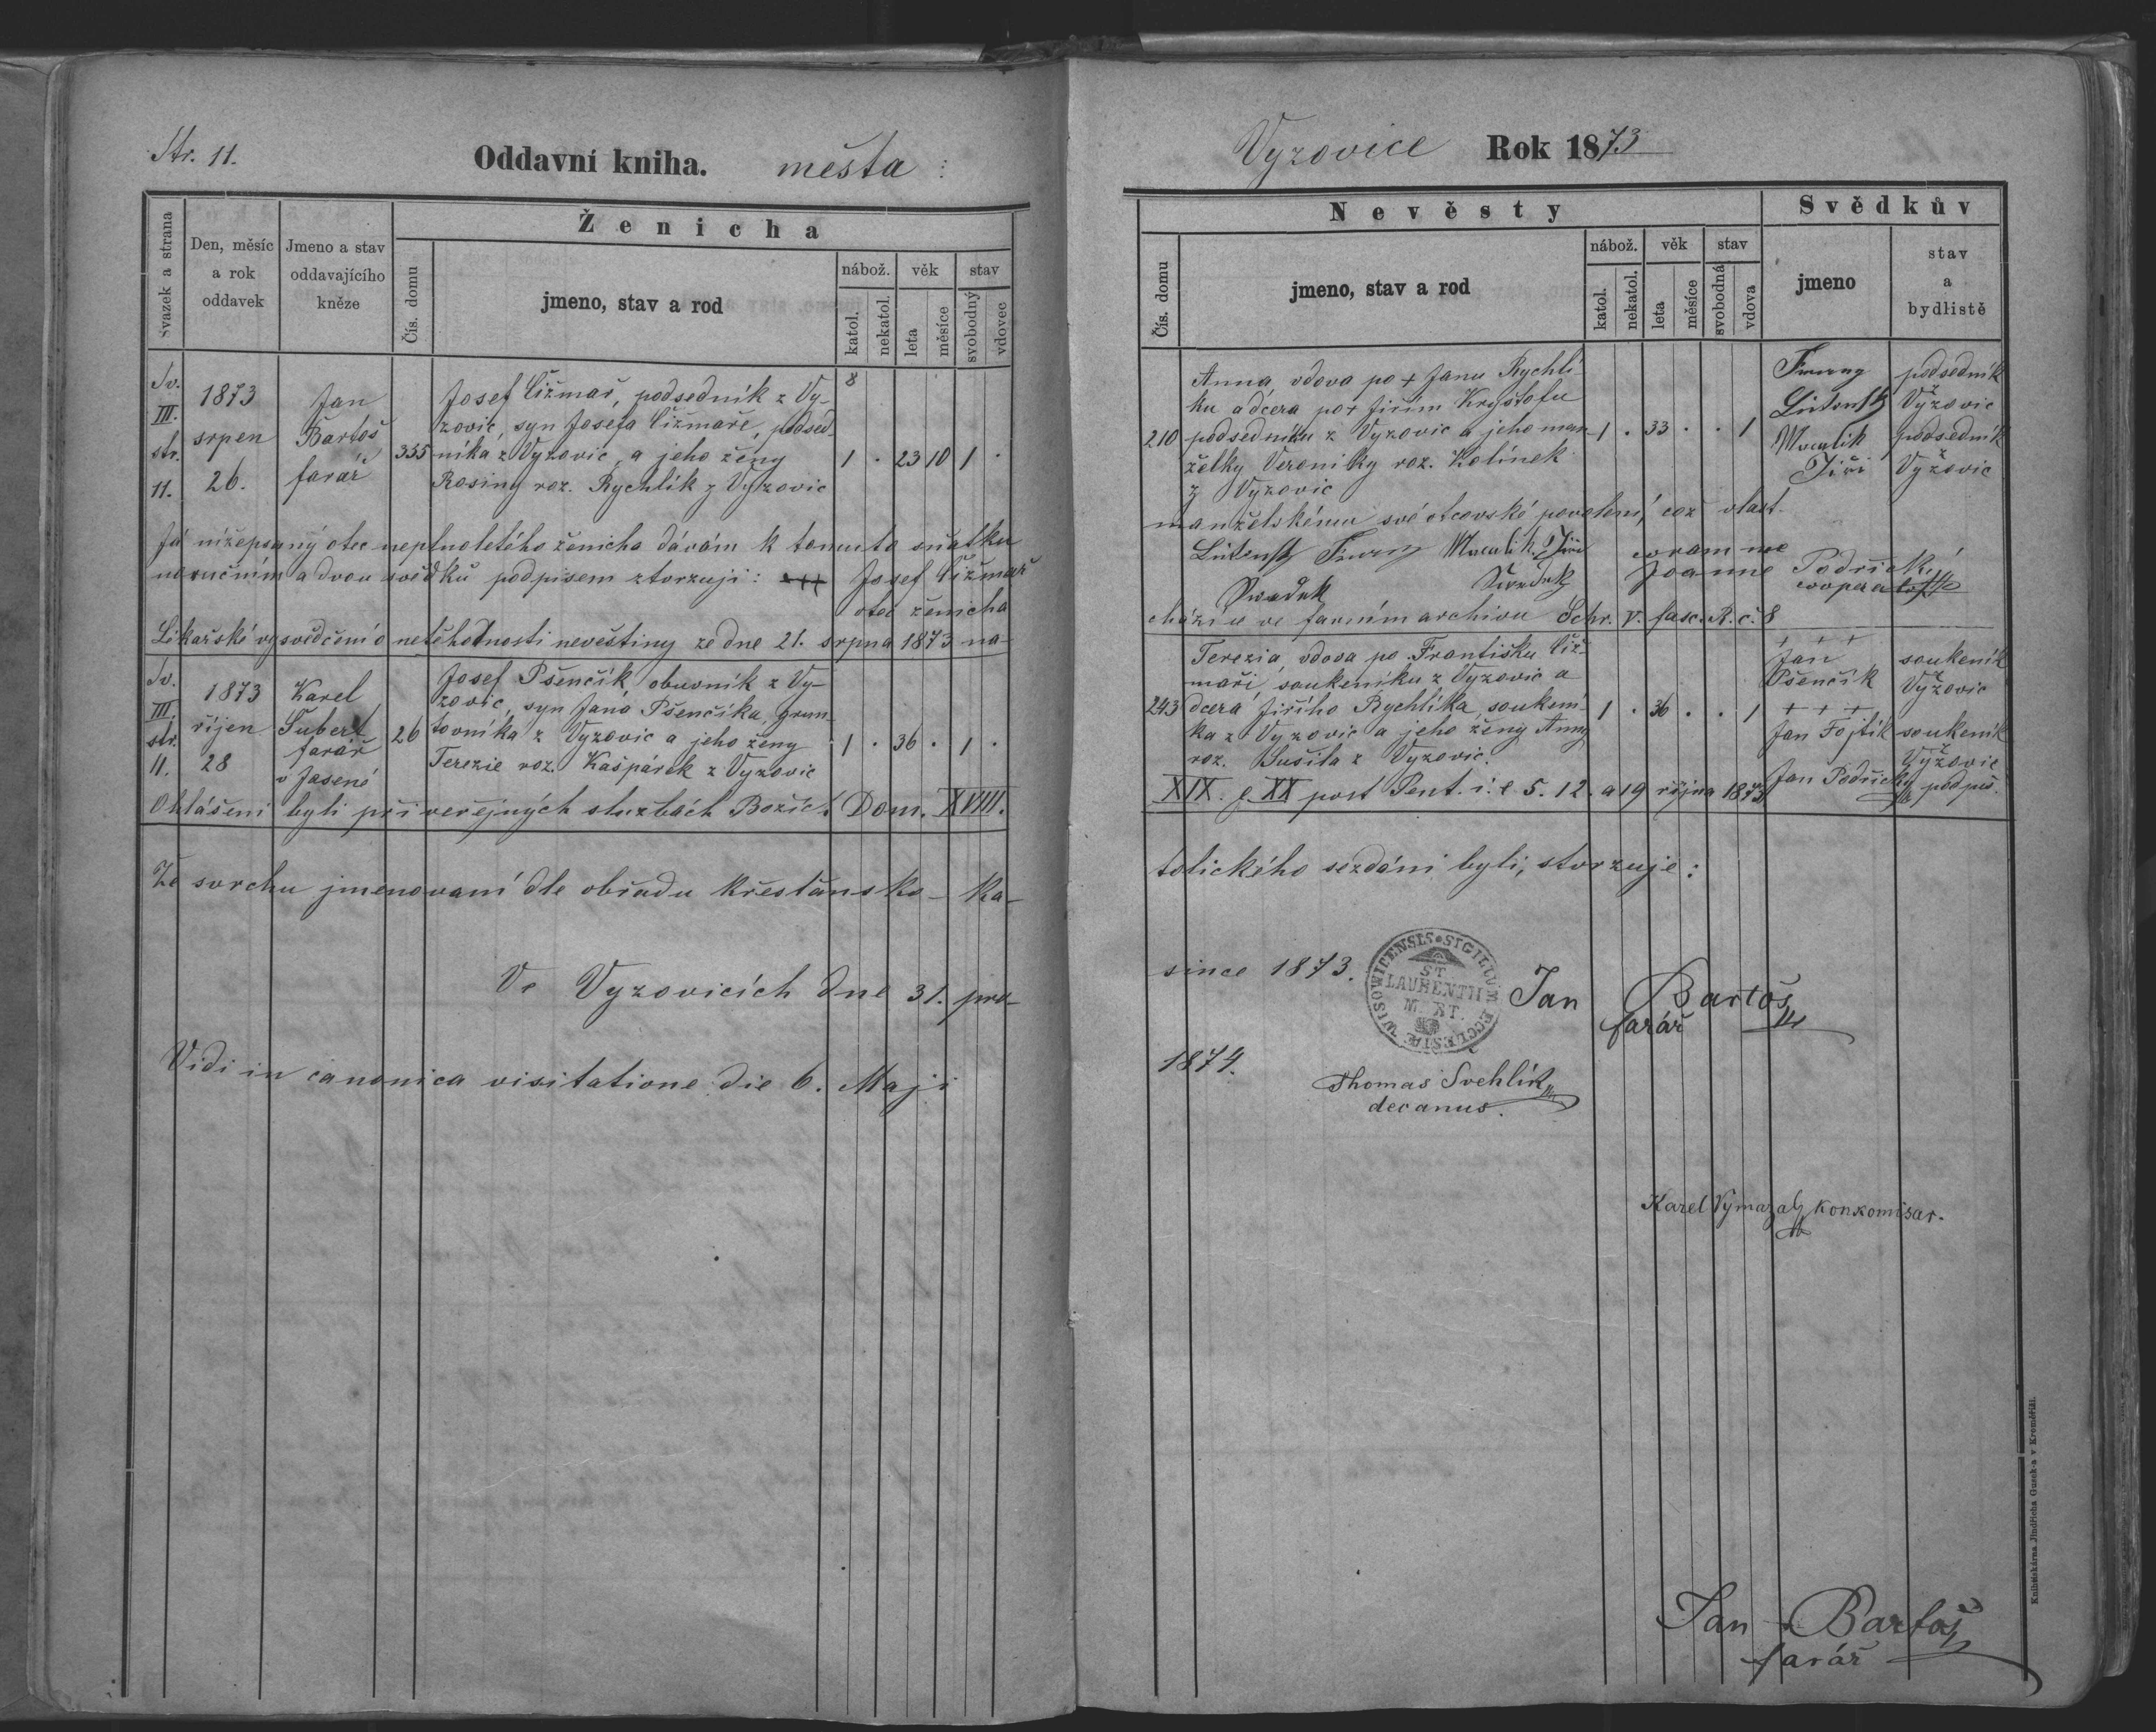 Str. 11.
Oddavní kniha. města :
Svazek a strana
Den, měsíc a rok oddavek
Jmeno a stav oddavajícího kněze
Ženicha
Čís. domu
jmeno, stav a rod
nábož. věk stav
katol. nekatol. leta měsíce svobodný vdovec
Sv. III. str. 11.
1873 srpen 26.
Jan Bartoš farář
355
Josef Čižmař, podsedník z Vy-
zovic, syn Josefa Čižmaře, podsed-
níka z Vyzovic, a jeho ženy
Rosiny roz. Rychlík z Vyzovic
8
1 . 23 10 1 .
Já nížepsaný otec neplnoletého ženicha dávám k tomuto sňatku
naručním a dvou svědků podpisem ztvrzuji: +++ Josef Čižmař
otec ženicha
Likařské vysvědčení o netěhotnosti nevěstiny ze dne 21. srpna 1873 na-
Sv. III. str. 11.
1873 říjen 28
Karel Šubert farář v Jasené
26
Josef Pšenčík, obuvník z Vy-
zovic, syn Jana Pšenčíka, grun-
tovníka z Vyzovic a jeho ženy
Terezie roz. Kašpárek z Vyzovic
1 . 36 . 1 .
Ohlášeni byli při verejných službách Božích Dom. XVIII.
Že svrchu jmenovaní dle obřadu křesťansko-ka-
Ve Vyzovicích dne 31. pro-
Vidi in canonica visitatione die 6. Maji
Vyzovice Rok 1873
Nevěsty
Svědkův
Čís. domu
jmeno, stav a rod
nábož. věk stav
katol. nekatol. leta měsíce svobodná vdova
jmeno
stav a bydlistě
210
Anna, vdova po + Janu Rychlí-
ku a dcera po + Jiřím Kryštofu
podsedníku z Vyzovic a jeho man-
želky Veroniky roz. Kolínek
z Vyzovic
1 . 33 . . 1
podsedník Vyžovic
Macalik Jiři
podsedník Vyžovic
manželskému své otcovské povolení, což vlast-
Macalik Jiři coram me
Svedek Joanne Podřický
cooperatore
chází se ve farním archivu Schr. V. fasc. A. č. 8
243
Terezia, vdova po Františku Čiž-
maři, soukeníku z Vyzovic a
dcera Jiřího Rychlíka, soukení-
ka z Vyzovic a jeho ženy Anny
roz. Sušila z Vyzovic.
1 . 36 . . 1
+ + +
Jan Pšenčík
soukeník Vyžovic
+ + +
Jan Fojtík
soukeník Vyžovic
Jan Podřický podpis.
XIX. & XX post Pent. i. e 5. 12. a 19 října 1873
tolického sezdáni byli, stvrzuje:
since 1873.
SIGILLUM ECCLESIÆ WISOWICENSIS
ST. LAURENTII M. RT.
Jan Bartoš
farář
1874.
Thomas Svehlík
decanus.
Karel Vymazal konkomisar.
Jan Bartoš
farář
Knihtiskárna Jindřicha Gusek-a v Kroměříži.